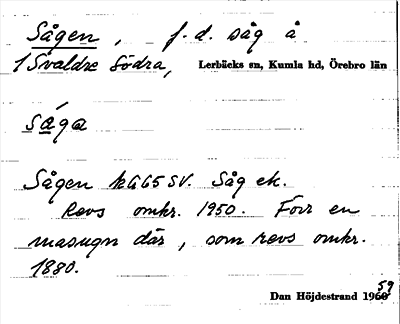 Sågen, f.d. såg å
1 Svaldre Södra, Lerbäcks sn, Kumla hd, Örebro län
såga
Sågen kG65 SV. Såg etc.
Revs omkr. 1950. Förr en
masugn där, som revs omkr.
1880.
Dan Höjdestrand 1959